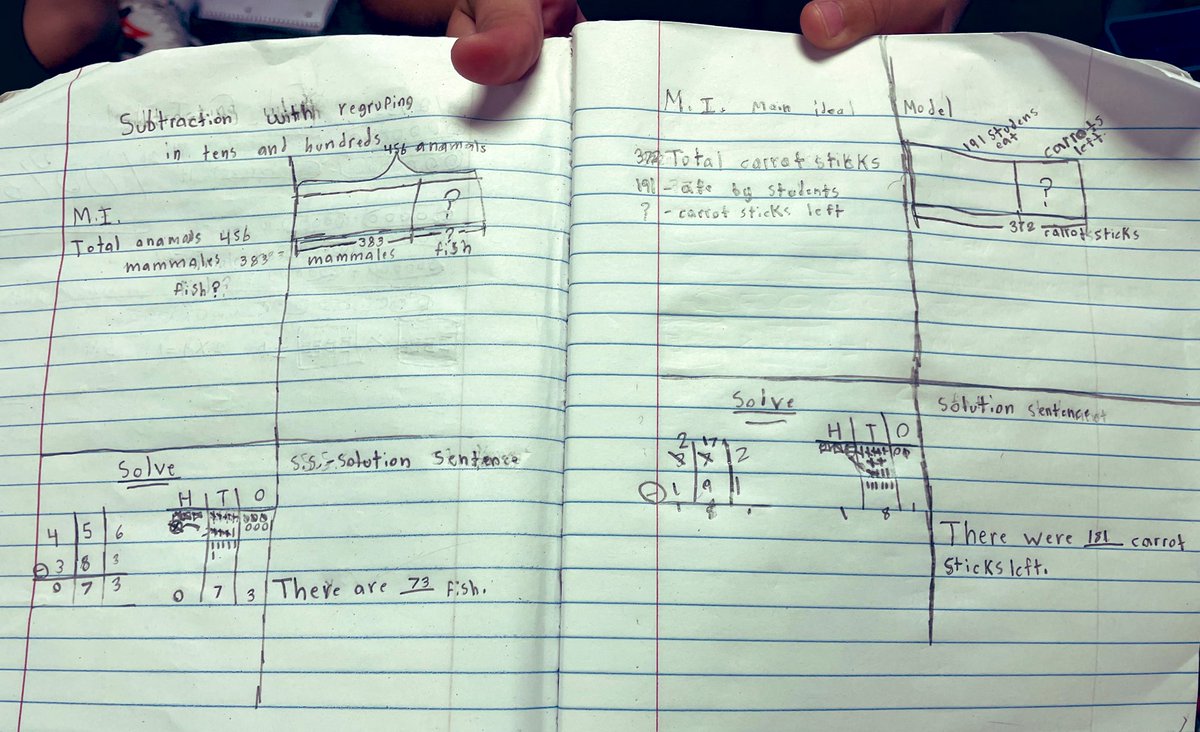 Subtraction with regruping
in tens and hundreds
456 anamals
?
M.I.
Total anamals 456
383
?
mammales 383
mammales
fish
fish?
Solve
S.S.-Solution Sentence
H T O
4 5 6
- 3 8 3
0 7 3
0 7 3
There are 73 fish.
M.I. Main ideal
Model
191 students
eat
carrots
left
372 Total carrot sticks
191 - ate by students
?
? - carrot sticks left
372
carrot sticks
Solve
Solution sentence
H T O
2 17
3 7 2
- 1 9 1
1 8 1
1 8 1
There were 181 carrot
sticks left.